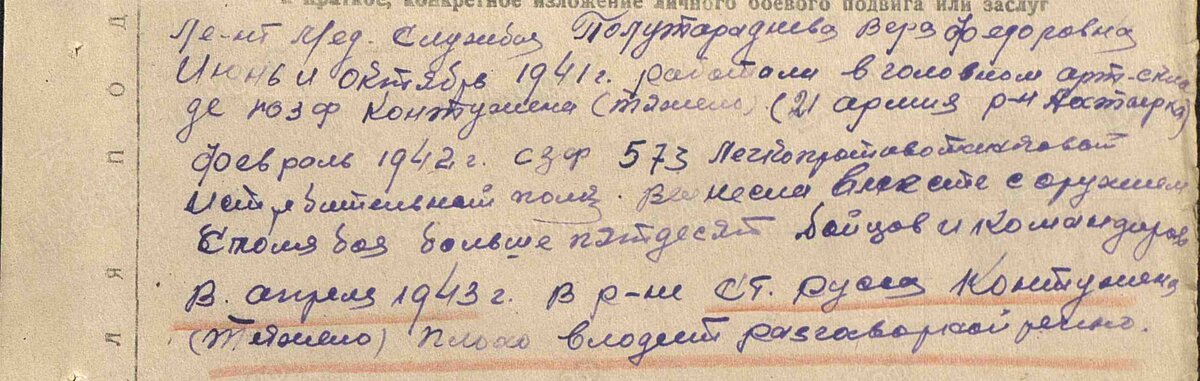 и краткое, конкретное изложение личного боевого подвига или заслуг
Ле-нт Мед. Службы Полутараднева Вера Федоровна
Июнь и Октябрь 1941 г. работали в головном арт-скла
де ЮЗФ Контужена (тяжело) (21 армия р-н Ахтырка)
Февраль 1942 г. СЗФ 573 Легкопротивотанковой
Истребительной полк. Вынесла вместе с оружием
с поля боя больше пятдесят бойцов и командиров
В. апреля 1943 г. В р-не Ст. русса Контужена
(тяжело) плохо владеет разговорной речью.
Л Я П О Д